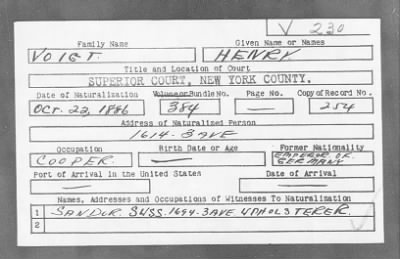 V 230
Family Name Given Name or Names
VOIGT HENRY
Title and Location of Court
SUPERIOR COURT, NEW YORK COUNTY.
Date of Naturalization Volume or Bundle No. Page No. Copy of Record No.
OCT. 22, 1886 384 — 254
Address of Naturalized Person
1614-3 AVE
Occupation Birth Date or Age Former Nationality
COOPER — EMPEROR OF GERMANY
Port of Arrival in the United States Date of Arrival
— —
Names, Addresses and Occupations of Witnesses To Naturalization
1 SANDOR SUSS. 1694-3 AVE UPHOLSTERER.
2